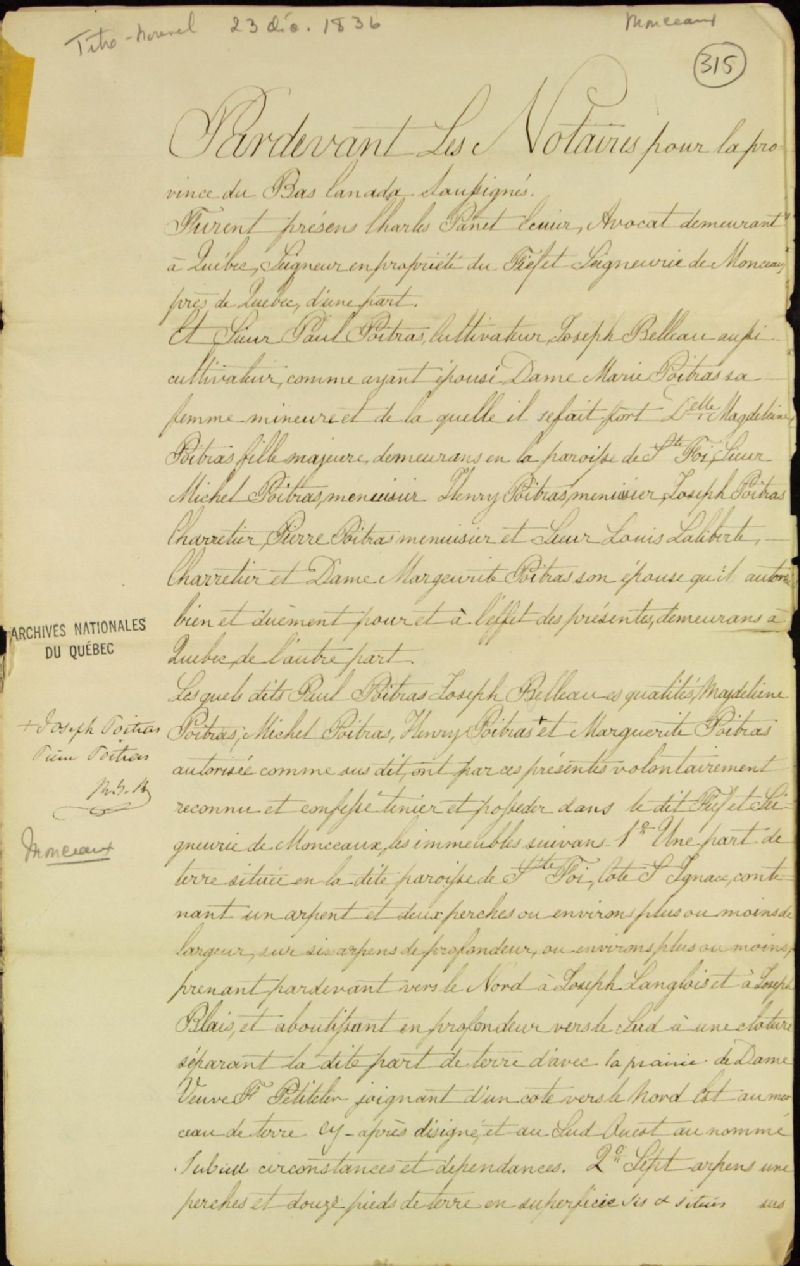 Titre-Nouvel 23 déc. 1836 Monceaux
315
Pardevant Les Notaires pour la pro-
vince du Bas Canada Soussignés.
Fûrent présens Charles Panet Ecuier, Avocat demeurant
à Québec, Seigneur en propriété du Fief et Seigneurie de Monceaux
près de Quebec, d'une part.
Et Sieur Paul Poitras, Cultivateur, Joseph Belleau aussi
cultivateur, comme ayant épousé Dame Marie Poitras sa
femme mineure et de la quelle il se fait fort Delle Magdeleine
Poitras fille majeure, demeurans en la paroisse de Ste Foi, Sieur
Michel Poitras, menuisier Henry Poitras, menuisier, Joseph Poitras
Charretier, Pierre Poitras menuisier et Sieur Louis Laliberté,
Charretier et Dame Margeurite Poitras son épouse qu'il autorise
bien et duement pour et à l'effet des présentes, demeurans à
Quebec, de l'autre part.
Lesquels dits Paul Poitras Joseph Belleau es qualités, Magdeleine
Poitras, Michel Poitras, Henry Poitras + et Marguerite Poitras
autorisée comme sus dit, ont par ces présentes volontairement
reconnu et confessé tenir et posseder dans le dit Fief et Sei-
gneurie de Monceaux, les immeubles suivans 1o Une part de
terre située en la dite paroisse de Ste Foi, Côté St Ignace, conte-
nant un arpent et deux perches ou environs plus ou moins de
largeur, sur six arpens de profondeur, ou environs, plus ou moins,
prenant pardevant vers le Nord à Joseph Langlois et à Joseph
Blais, et aboutissant en profondeur vers le Sud à une cloture
séparant la dite part de terre d'avec la prairie de Dame
Veuve F. Petitcler joignant d'un coté vers le Nord Est au mor-
ceau de terre cy-après désigné, et au Sud Ouest au nommé
circonstances et dependances. 2o Sept arpens une
perches et douze pieds de terre en superficie sis & situés sus
ARCHIVES NATIONALES
DU QUÉBEC
+ Joseph Poitras
Pierre Poitras
Monceaux